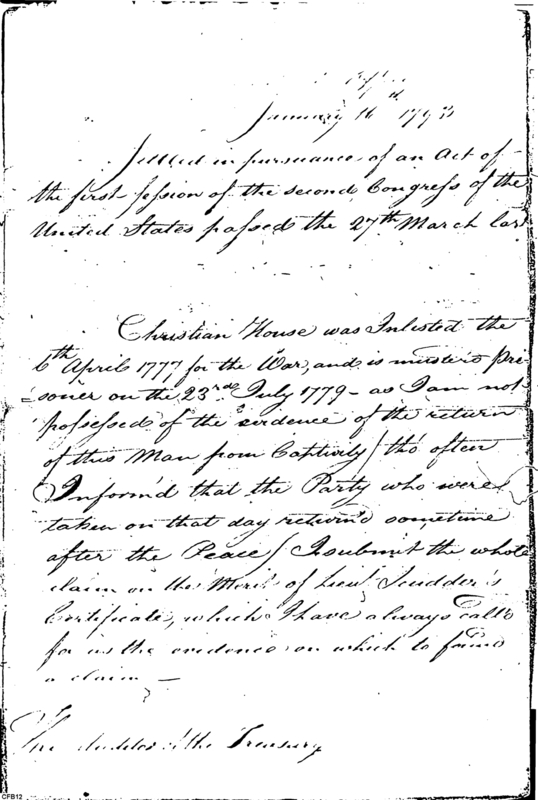 January 16 1793
Issued in pursuance of an Act of
the first Session of the second Congress of the
United States passed the 27th March last
Christian House was Inlisted the
6th April 1777 for the War, and is muster'd Pri-
soner on the 23rd July 1779 - as I am not
possessed of the evidence of the return
of this Man from Captivity / tho' often
Inform'd that the Party who were
taken on that day return'd sometime
after the Peace / I submit the whole
claim on the Merit of Lieut. Scudder's
Certificate, which I have always call'd
for as the evidence on which to found
a claim —
The Auditor of the Treasury
CFB12